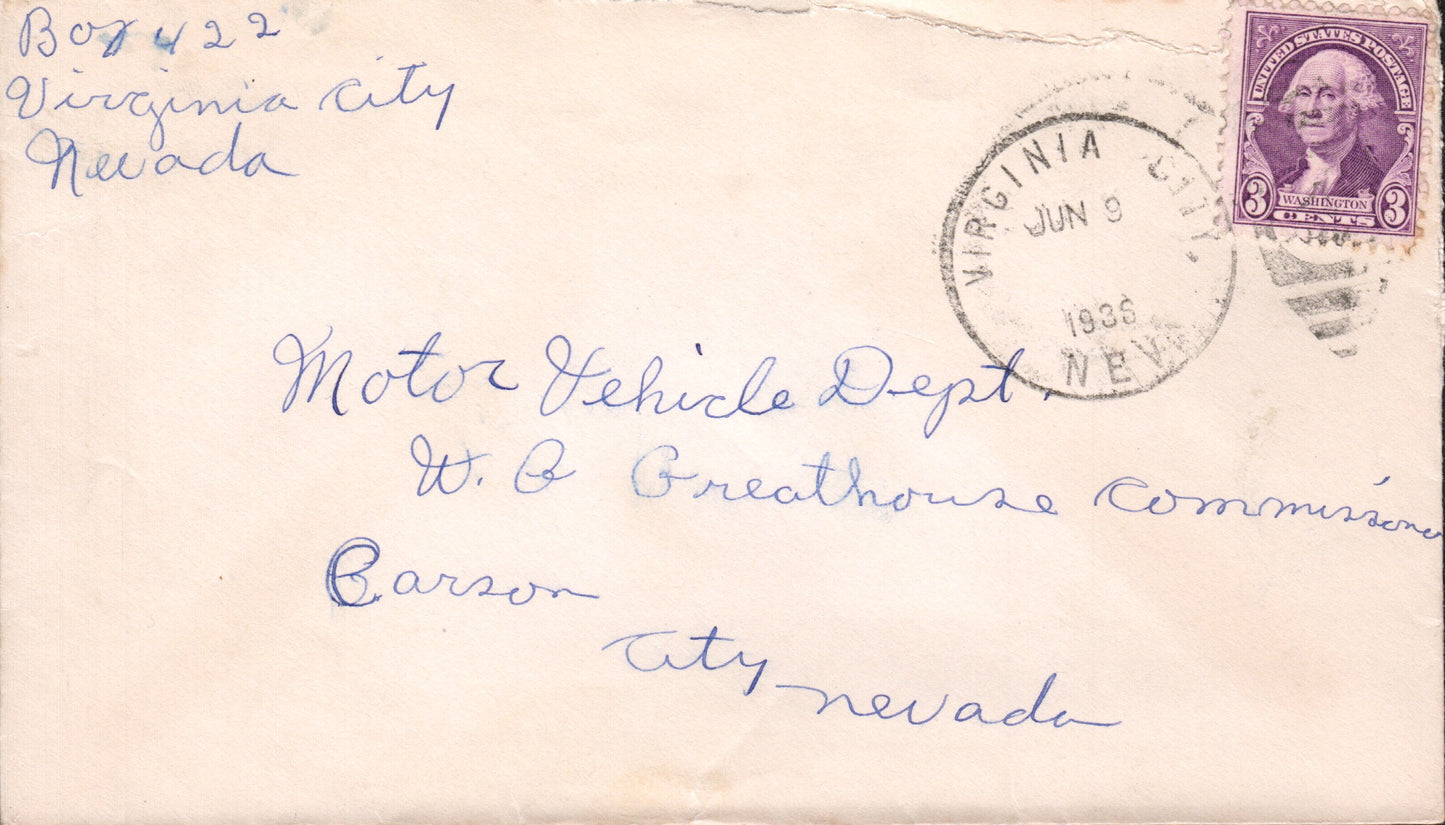 Box 422
Virginia City
Nevada
UNITED STATES POSTAGE
3 WASHINGTON 3
CENTS
VIRGINIA CITY,
JUN 9
1936
NEV
Motor Vehicle Dept.
W. G Greathouse Commissioner
Carson
City
Nevada